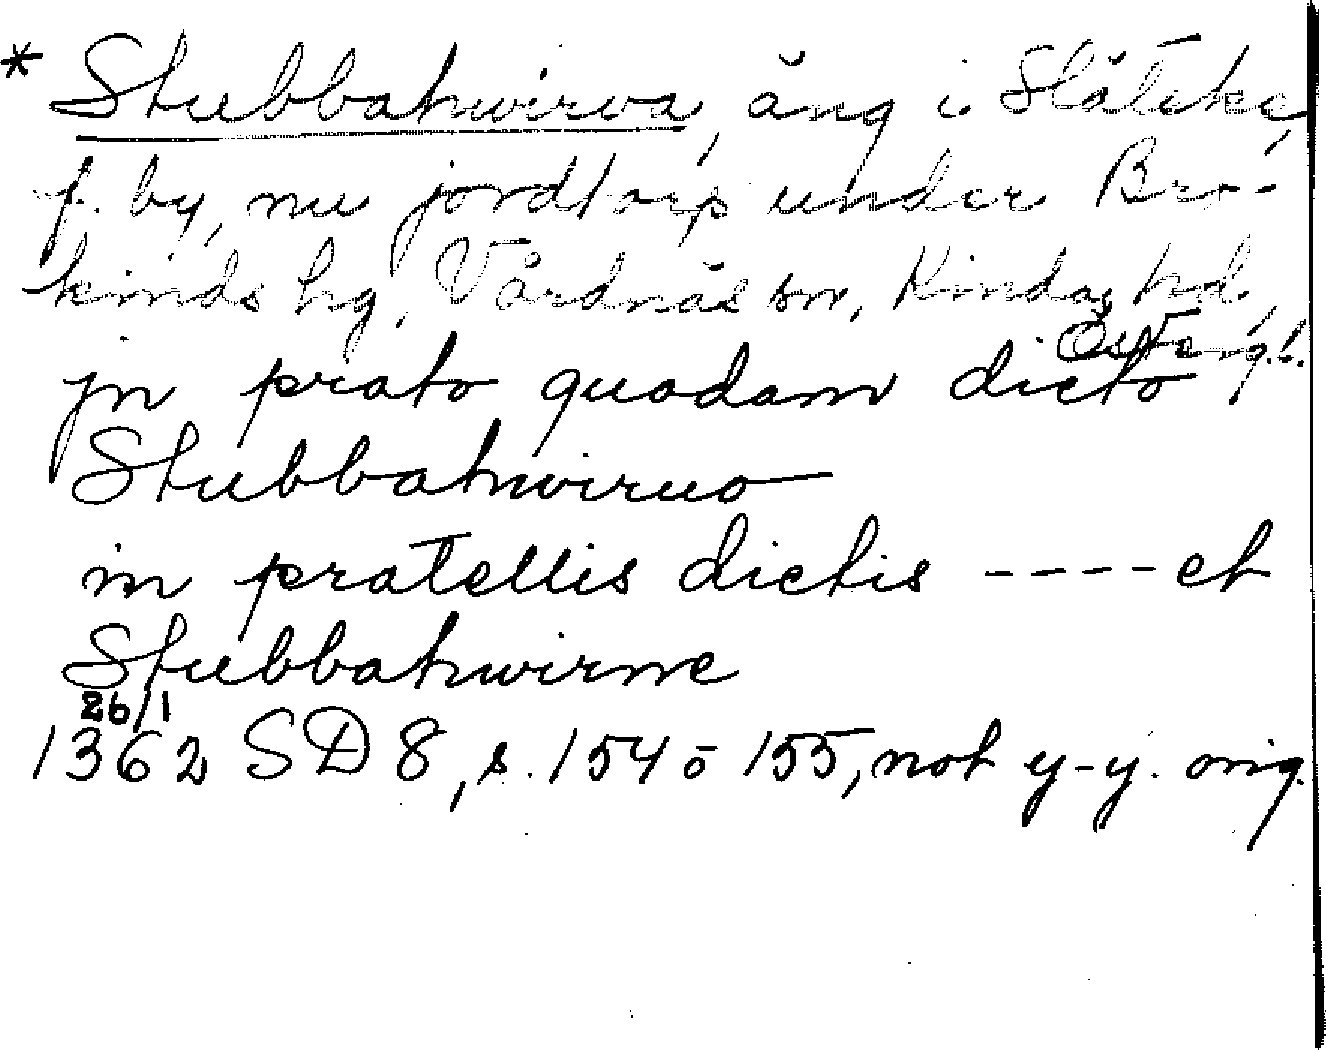 * Stubbahwirva, äng i Släteke,
f. by, nu jordtorp under Bro-
kinds hg, Vårdnäs sn, Kinda hd,
Österg.l.
jn prato quodam dicto
Stubbahwiruo
in pratellis dictis ---- et
Stubbahwirve
26/1
1362 SD 8, s. 154 o 155, not y-y. orig.